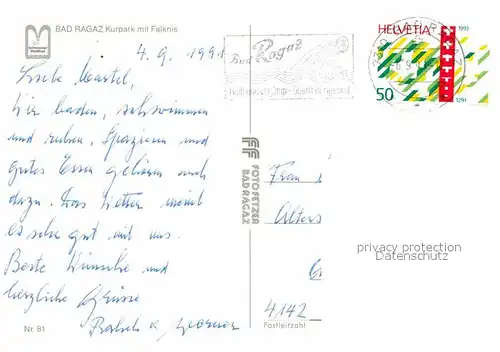 BAD RAGAZ Kurpark mit Falknis
4.9.1991
Bad Ragaz
HELVETIA
1991
50
1291
Liebe
Wir baden, schwimmen
und ruhen. Spazieren und
gutes Essen gehören auch
dazu. Das Wetter meint
es sehr gut mit uns.
Beste Wünsche und
herzliche Grüsse
FOTO FETZER
BAD RAGAZ
Frau
Alters
privacy protection
Datenschutz
4142
Postleitzahl
Nr. 81